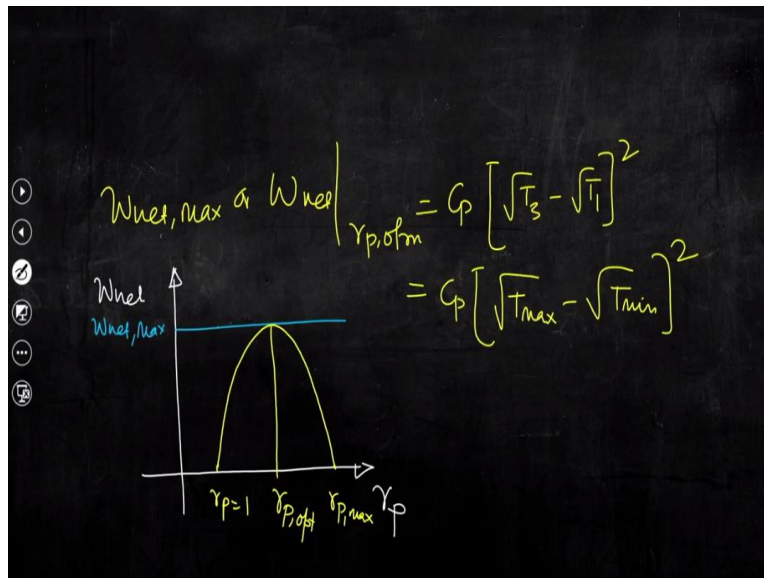 Wnet,max or Wnet|rp,optm = Cp [√T3 - √T1]²
= Cp [√Tmax - √Tmin]²
Wnet
Wnet,max
rp=1 rp,opt rp,max rp